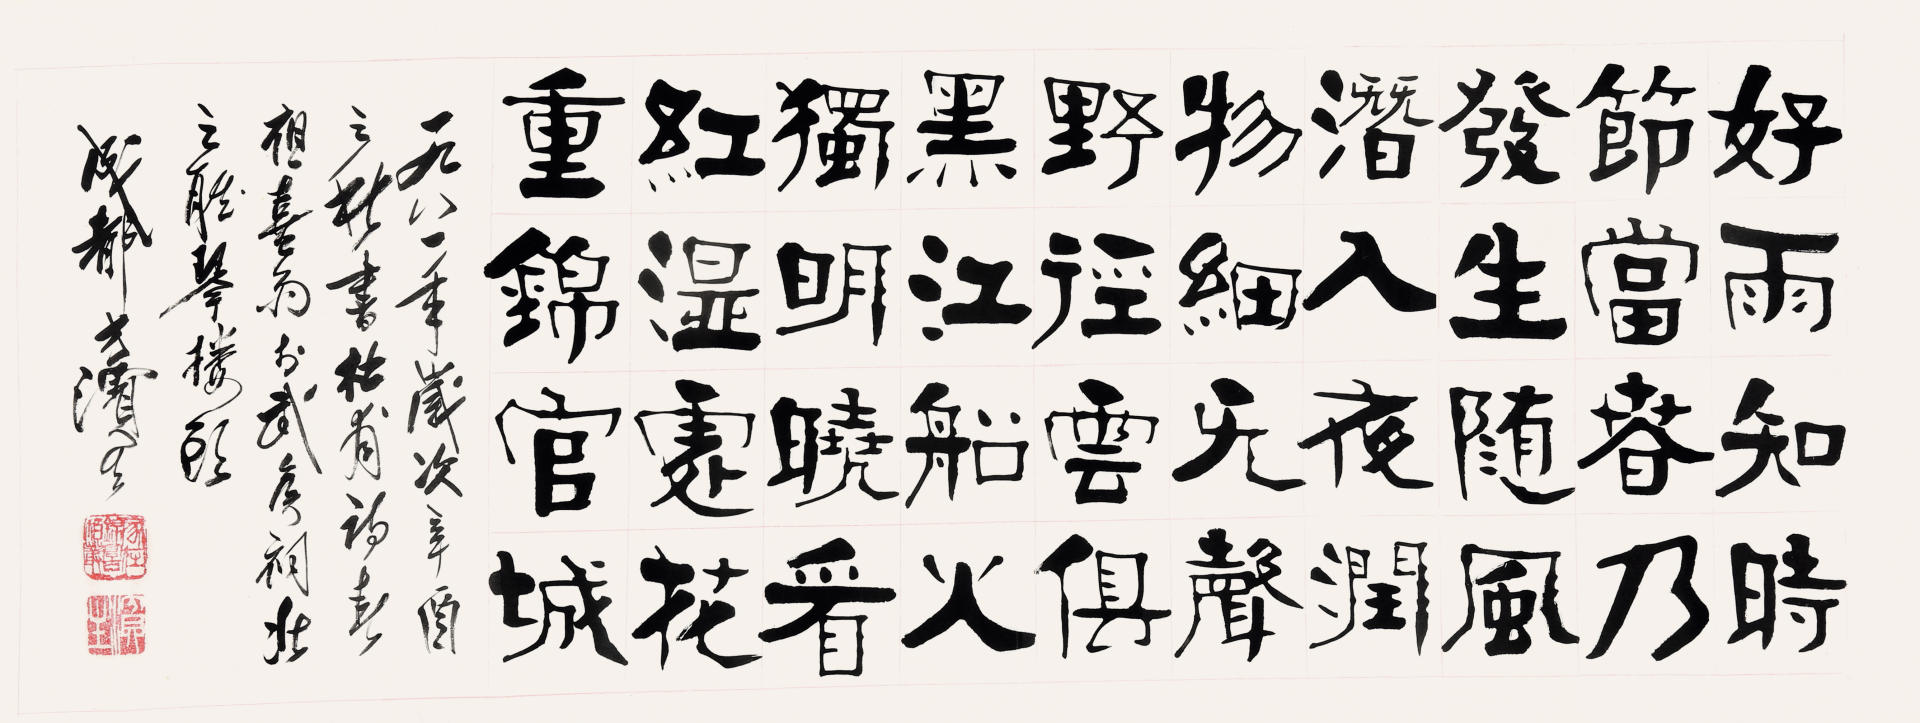 好雨知時
節當春乃
發生随風
潛入夜
潤
物細无聲
野徑雲俱
黑江船火
獨明曉看
紅濕處花
重錦官城
一九八一年歲次辛酉
之秋書杜甫詩春
祖喜雨於武侯祠北
之聽琴楼頭
成都